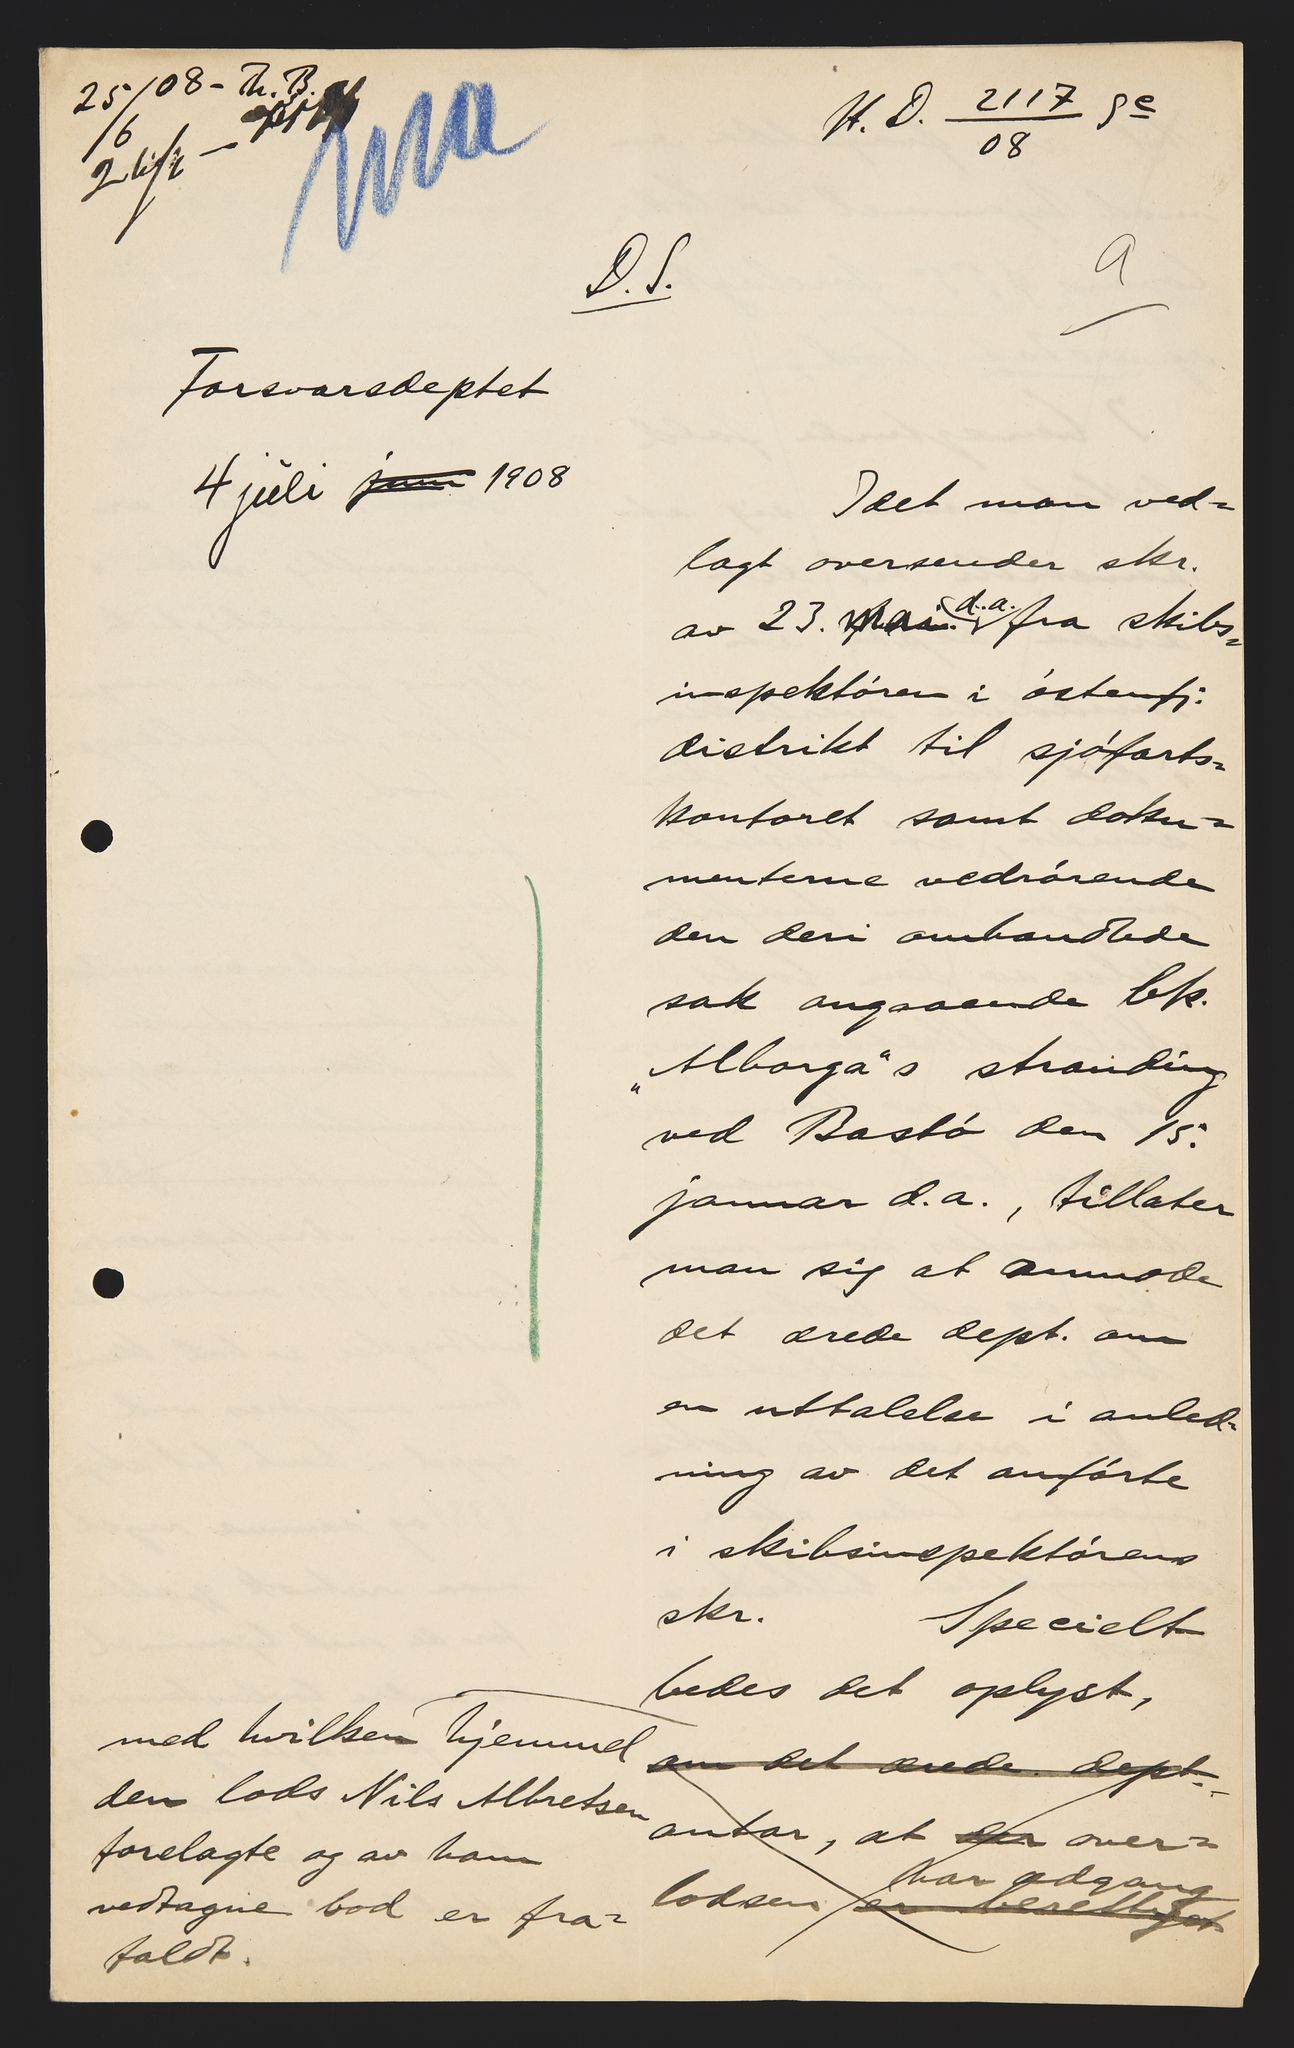 25/6 08 - Th. B.
26/6 -
H. D. 2117/08 ge
D. S.
a
Forsvarsdeptet
4 juli juni 1908
Idet man ved=
lagt oversender skr.
av 23. mai d.a. fra skibs=
inspektören i östenfj.
distrikt til sjöfarts=
kontoret samt doku=
menterne vedrörende
den deri omhandlede
sak angaaende bk.
„Alborga“s stranding
ved Bastö den 15.
januar d.a., tillater
man sig at anmode
det ærede dept. om
en uttalelse i anled=
ning av det anförte
i skibsinspektörens
skr. Specielt
bedes det oplyst,
om det ærede dept.
antar, at over=
har adgang
lodsen er berettiget
med hvilken hjemmel
den lods Nils Albretsen
forelagte og av ham
vedtagne bod er fra=
faldt.